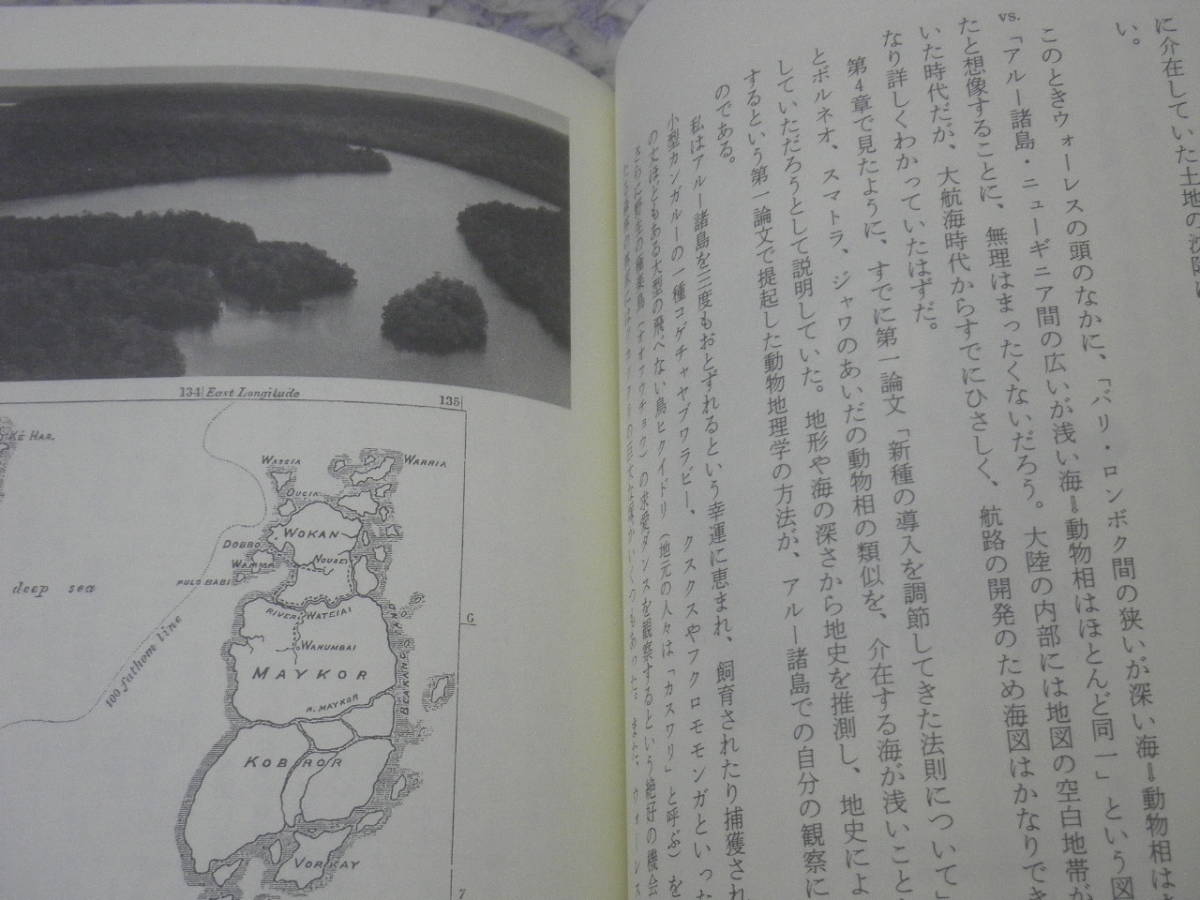 に介在していた土地の沈降
い。
このときウォーレスの頭のなかに、「バリ・ロンボク間の狭いが深い海＝動物相は
vs.「アルー諸島・ニューギニア間の広いが浅い海＝動物相はほとんど同一」という図
たと想像することに、無理はまったくないだろう。大陸の内部には地図の空白地帯が
いた時代だが、大航海時代からすでにひさしく、航路の開発のため海図はかなりでき
なり詳しくわかっていたはずだ。
第4章で見たように、すでに第一論文「新種の導入を調節してきた法則について」
とボルネオ、スマトラ、ジャワのあいだの動物相の類似を、介在する海が浅いこと
していただろうとして説明していた。地形や海の深さから地史を推測し、地史によ
するという第一論文で提起した動物地理学の方法が、アルー諸島での自分の観察に
のである。
私はアルー諸島を三度もおとずれるという幸運に恵まれ、飼育されたり捕獲され
小型カンガルーの一種コゲチャヤブワラビー、クスクスやフクロモモンガといった
のせほどもある大型の飛べない鳥ヒクイドリ（地元の人々は「カスワリ」と呼ぶ）を
さらに野生の極楽鳥（オオフウチョウ）の求愛ダンスを観察するという絶好の機会
134 East Longitude
135
KÉ HAR.
WASSIA
WARRIA
OUGIA
WOKAN
DOBBO
WAMMA
PULO BABI
RIVER WATELAI
WANUMBAI
deep sea
100 fathom line
MAYKOR
R. MAYKOR
6
KOBROR
VORKAY
7